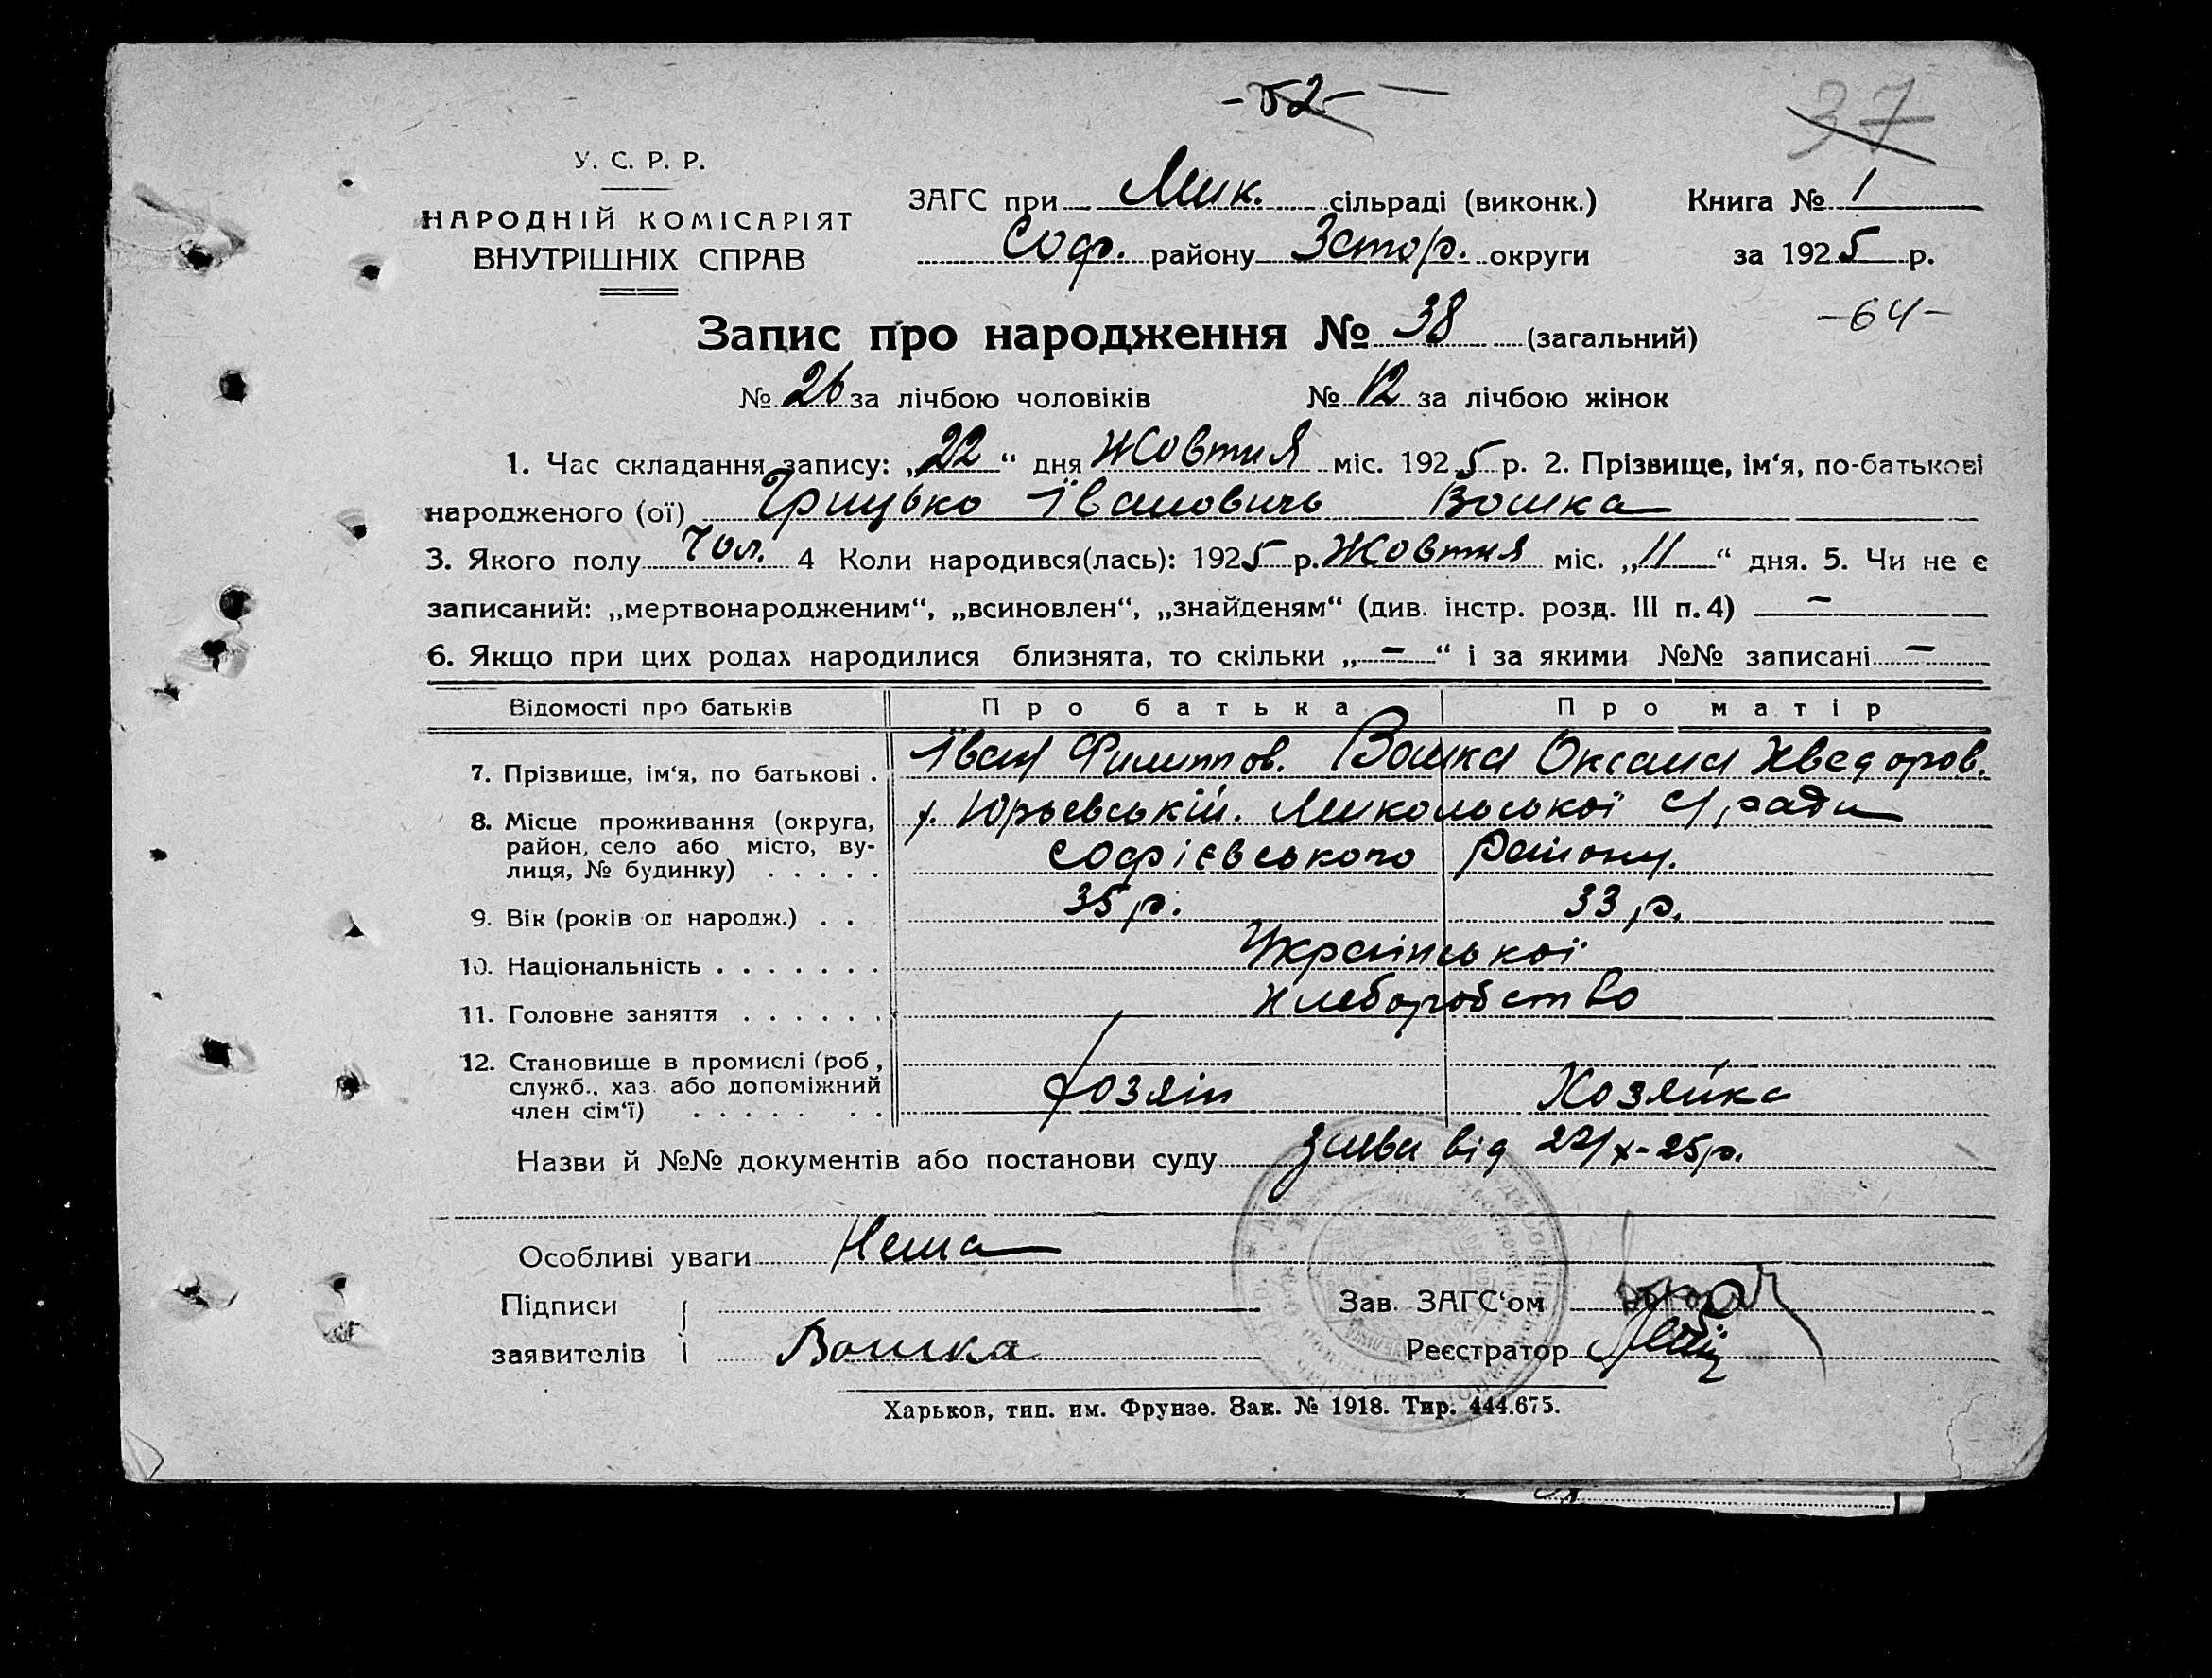 -52-
37
У. С. Р. Р.
НАРОДНІЙ КОМІСАРІЯТ
ВНУТРІШНІХ СПРАВ
ЗАГС при Мик. сільраді (виконк.) Книга № 1
Соф. району Запор. округи за 1925 р.
-64-
Запис про народження № 38 (загальний)
№ 26 за лічбою чоловіків № 12 за лічбою жінок
1. Час складання запису: „22“ дня Жовтня міс. 1925 р. 2. Прізвище, ім‘я, по-батькові
народженого (ої) Грицько Іванович Вошка
3. Якого полу Чол. 4 Коли народився(лась): 1925 р. Жовтня міс. „11“ дня. 5. Чи не є
записаний: „мертвонародженим“, „всиновлен“, „знайденям“ (див. інстр. розд. III п. 4) –
6. Якщо при цих родах народилися близнята, то скільки „–“ і за якими №№ записані –
Відомості про батьків Про батька Про матір
7. Прізвище, ім‘я, по батькові . Іван Филиппов. Вошка Оксана Хведоров.
8. Місце проживання (округа, х. Юрьевській. Микольської с/ради
район, село або місто, ву- Софієвського Району.
лиця, № будинку) . . . . .
9. Вік (років од народж.) . . 35 р. 33 р.
10. Національність . . . . . . . Української
11. Головне заняття . . . . . . Хлеборобство
12. Становище в промислі (роб.,
служб., хаз. або допоміжний Хозяін Хозяйка
член сім‘ї) . . . . . . .
Назви й №№ документів або постанови суду заява від 22/X-25р.
Особливі уваги Нема
Підписи Зав. ЗАГС‘ом
заявителів Вошка Реєстратор
Харьков, тип. им. Фрунзе. Зак. № 1918. Тир. 444.675.